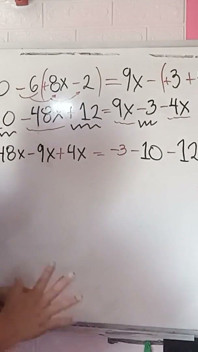 0 - 6(+8x - 2) = 9x - (+3 +
10 - 48x + 12 = 9x - 3 - 4x
48x - 9x + 4x = -3 - 10 - 12